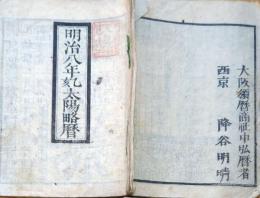 大阪頒暦商社中弘暦者
西京
降谷明晴
明治八年乙亥太陽略暦